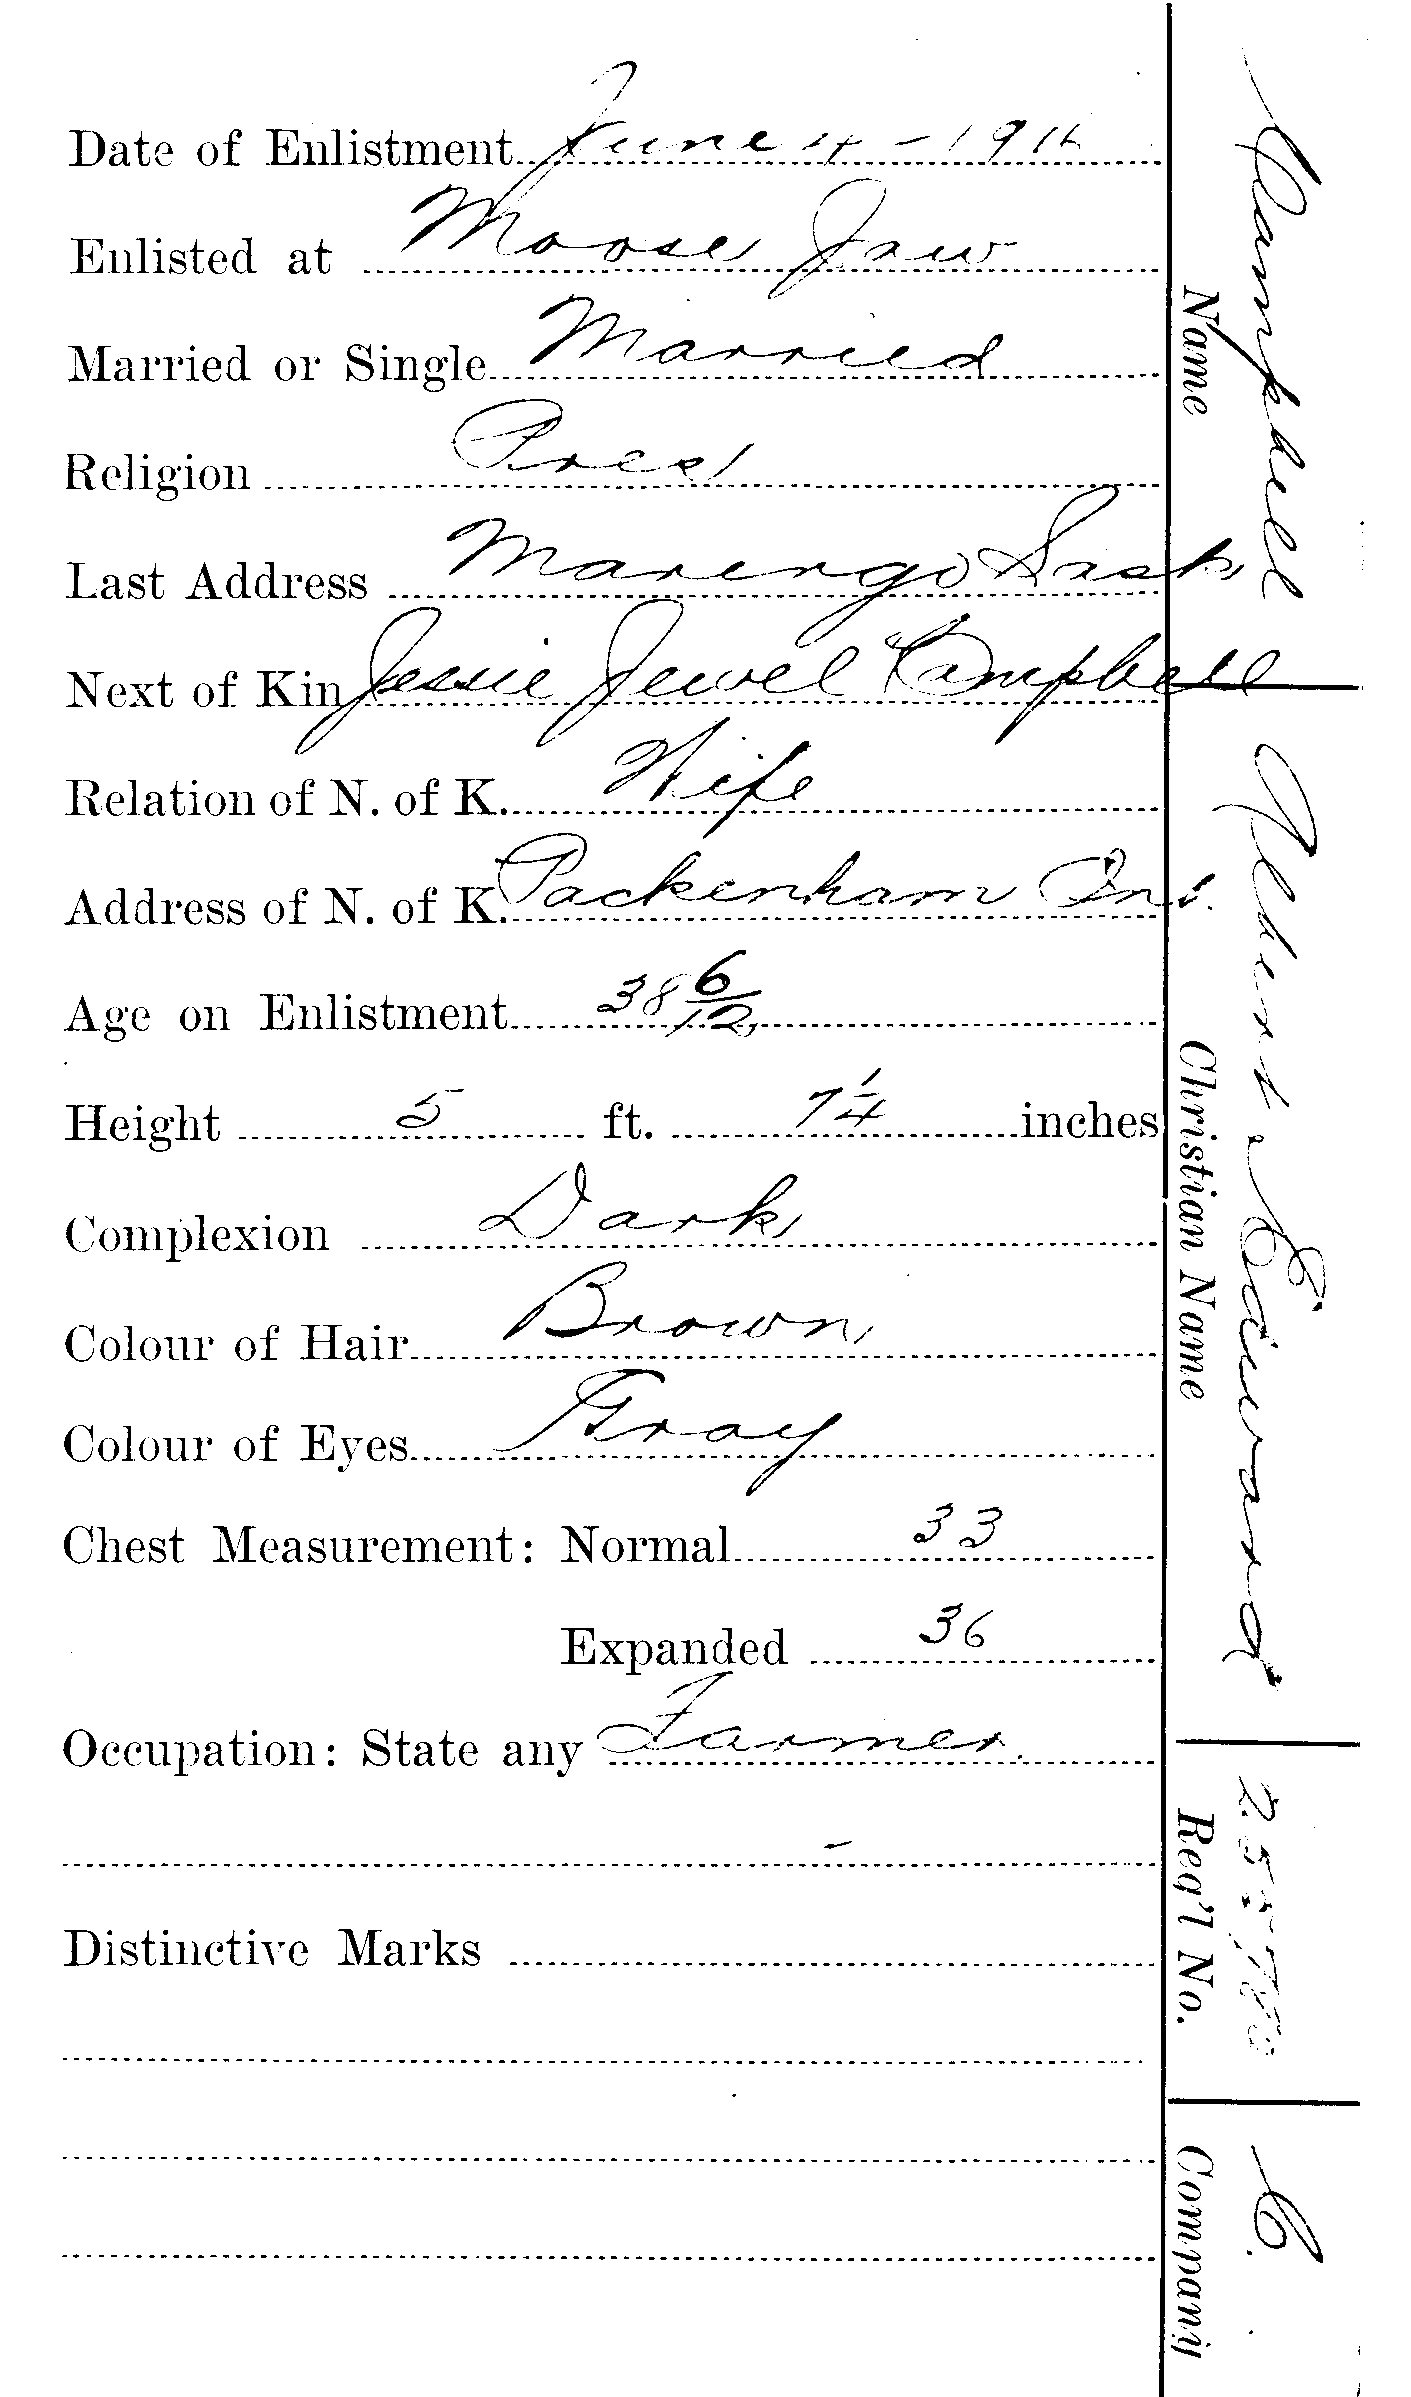 Date of Enlistment June 4 - 1916
Enlisted at Moose Jaw
Married or Single Married
Religion Pres
Last Address Marengo Sask,
Next of Kin Jessie Jewel Campbell
Relation of N. of K. Wife
Address of N. of K. Packenham Ont.
Age on Enlistment 38 6/12
Height 5 ft. 7 1/4 inches
Complexion Dark
Colour of Hair Brown
Colour of Eyes Gray
Chest Measurement: Normal 33
Expanded 36
Occupation: State any Farmer.
-
Distinctive Marks
Name Campbell
Christian Name Albert Edward
Reg'l No.
Company C.